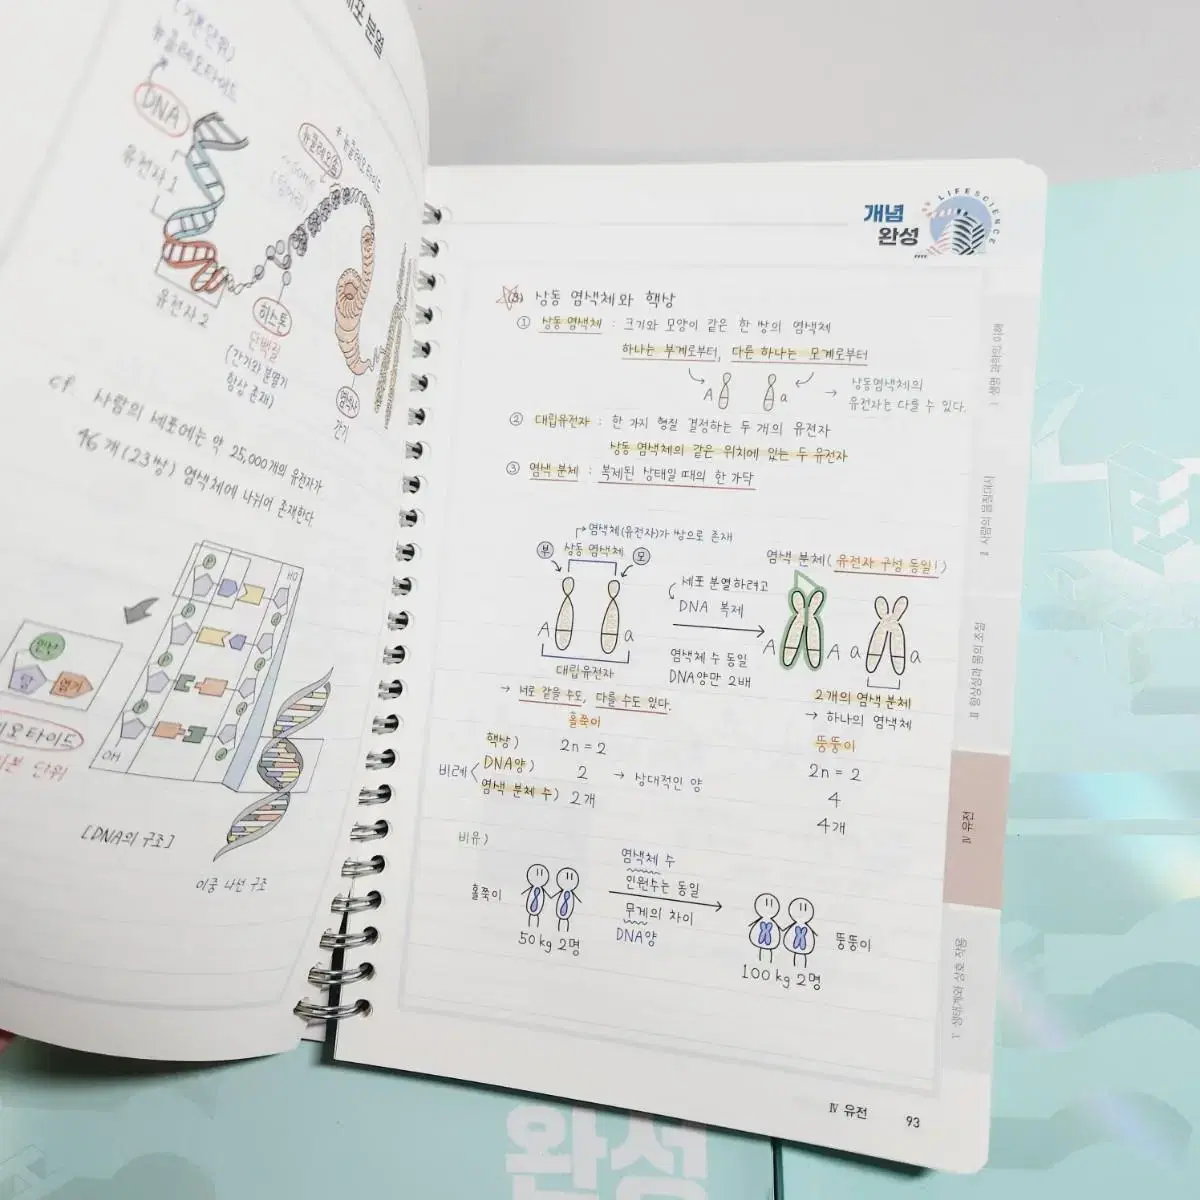 세포 분열
(기본단위)
뉴클레오타이드
DNA
유전자 1
유전자 2
뉴클레오솜
* 뉴클레오타이드
히스톤
단백질
(간기와 분열기
항상 존재)
염색사
간기
cf. 사람의 세포에는 약 25,000개의 유전자가
46개(23쌍) 염색체에 나뉘어 존재한다.
P
P
P
P
P
P
P
P
HO
OH
인산
당
염기
오타이드
본 단위
[DNA의 구조]
이중 나선 구조
개념
완성
LIFE SCIENCE
(3) 상동 염색체와 핵상
① 상동 염색체 : 크기와 모양이 같은 한 쌍의 염색체
하나는 부계로부터, 다른 하나는 모계로부터
A a → 상동염색체의
유전자는 다를 수 있다.
② 대립유전자 : 한 가지 형질 결정하는 두 개의 유전자
상동 염색체의 같은 위치에 있는 두 유전자
③ 염색 분체 : 복제된 상태일 때의 한 가닥
→염색체(유전자)가 쌍으로 존재
부 상동 염색체 모
A a
대립유전자
→ 서로 같을 수도, 다를 수도 있다.
세포 분열하려고
DNA 복제
염색체 수 동일
DNA양만 2배
염색 분체(유전자 구성 동일!)
A A a a
2개의 염색 분체
→ 하나의 염색체
홀쭉이
뚱뚱이
핵상) 2n = 2
2n = 2
비례< DNA양) 2 → 상대적인 양
4
염색 분체 수) 2개
4개
비유)
홀쭉이
50kg 2명
염색체 수
인원수는 동일
무게의 차이
DNA양
뚱뚱이
100kg 2명
Ⅰ 생명 과학의 이해
Ⅱ 사람의 물질대사
Ⅲ 항상성과 몸의 조절
Ⅳ 유전
Ⅴ 생태계와 상호 작용
Ⅳ 유전 93
완성